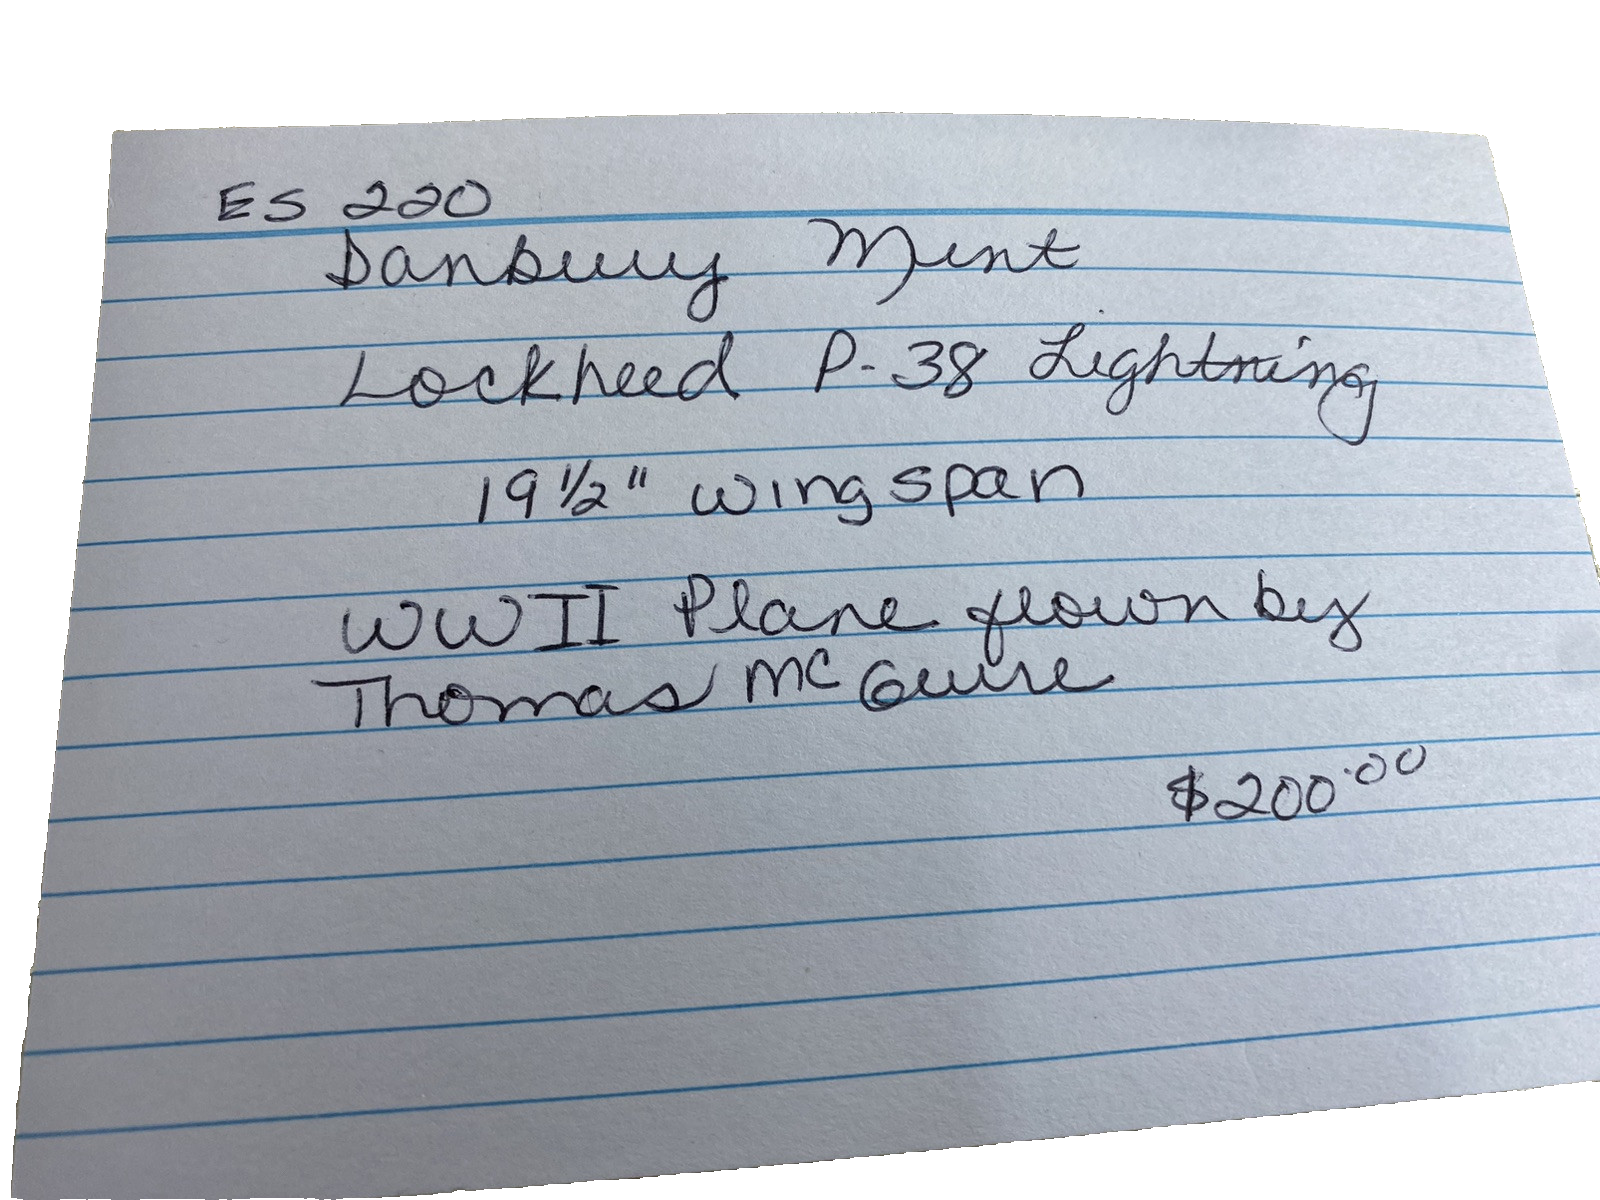 ES 220
Danbury Mint
Lockheed P-38 Lightning
19 1/2" wingspan
WWII Plane flown by
Thomas McGuire
$200.00